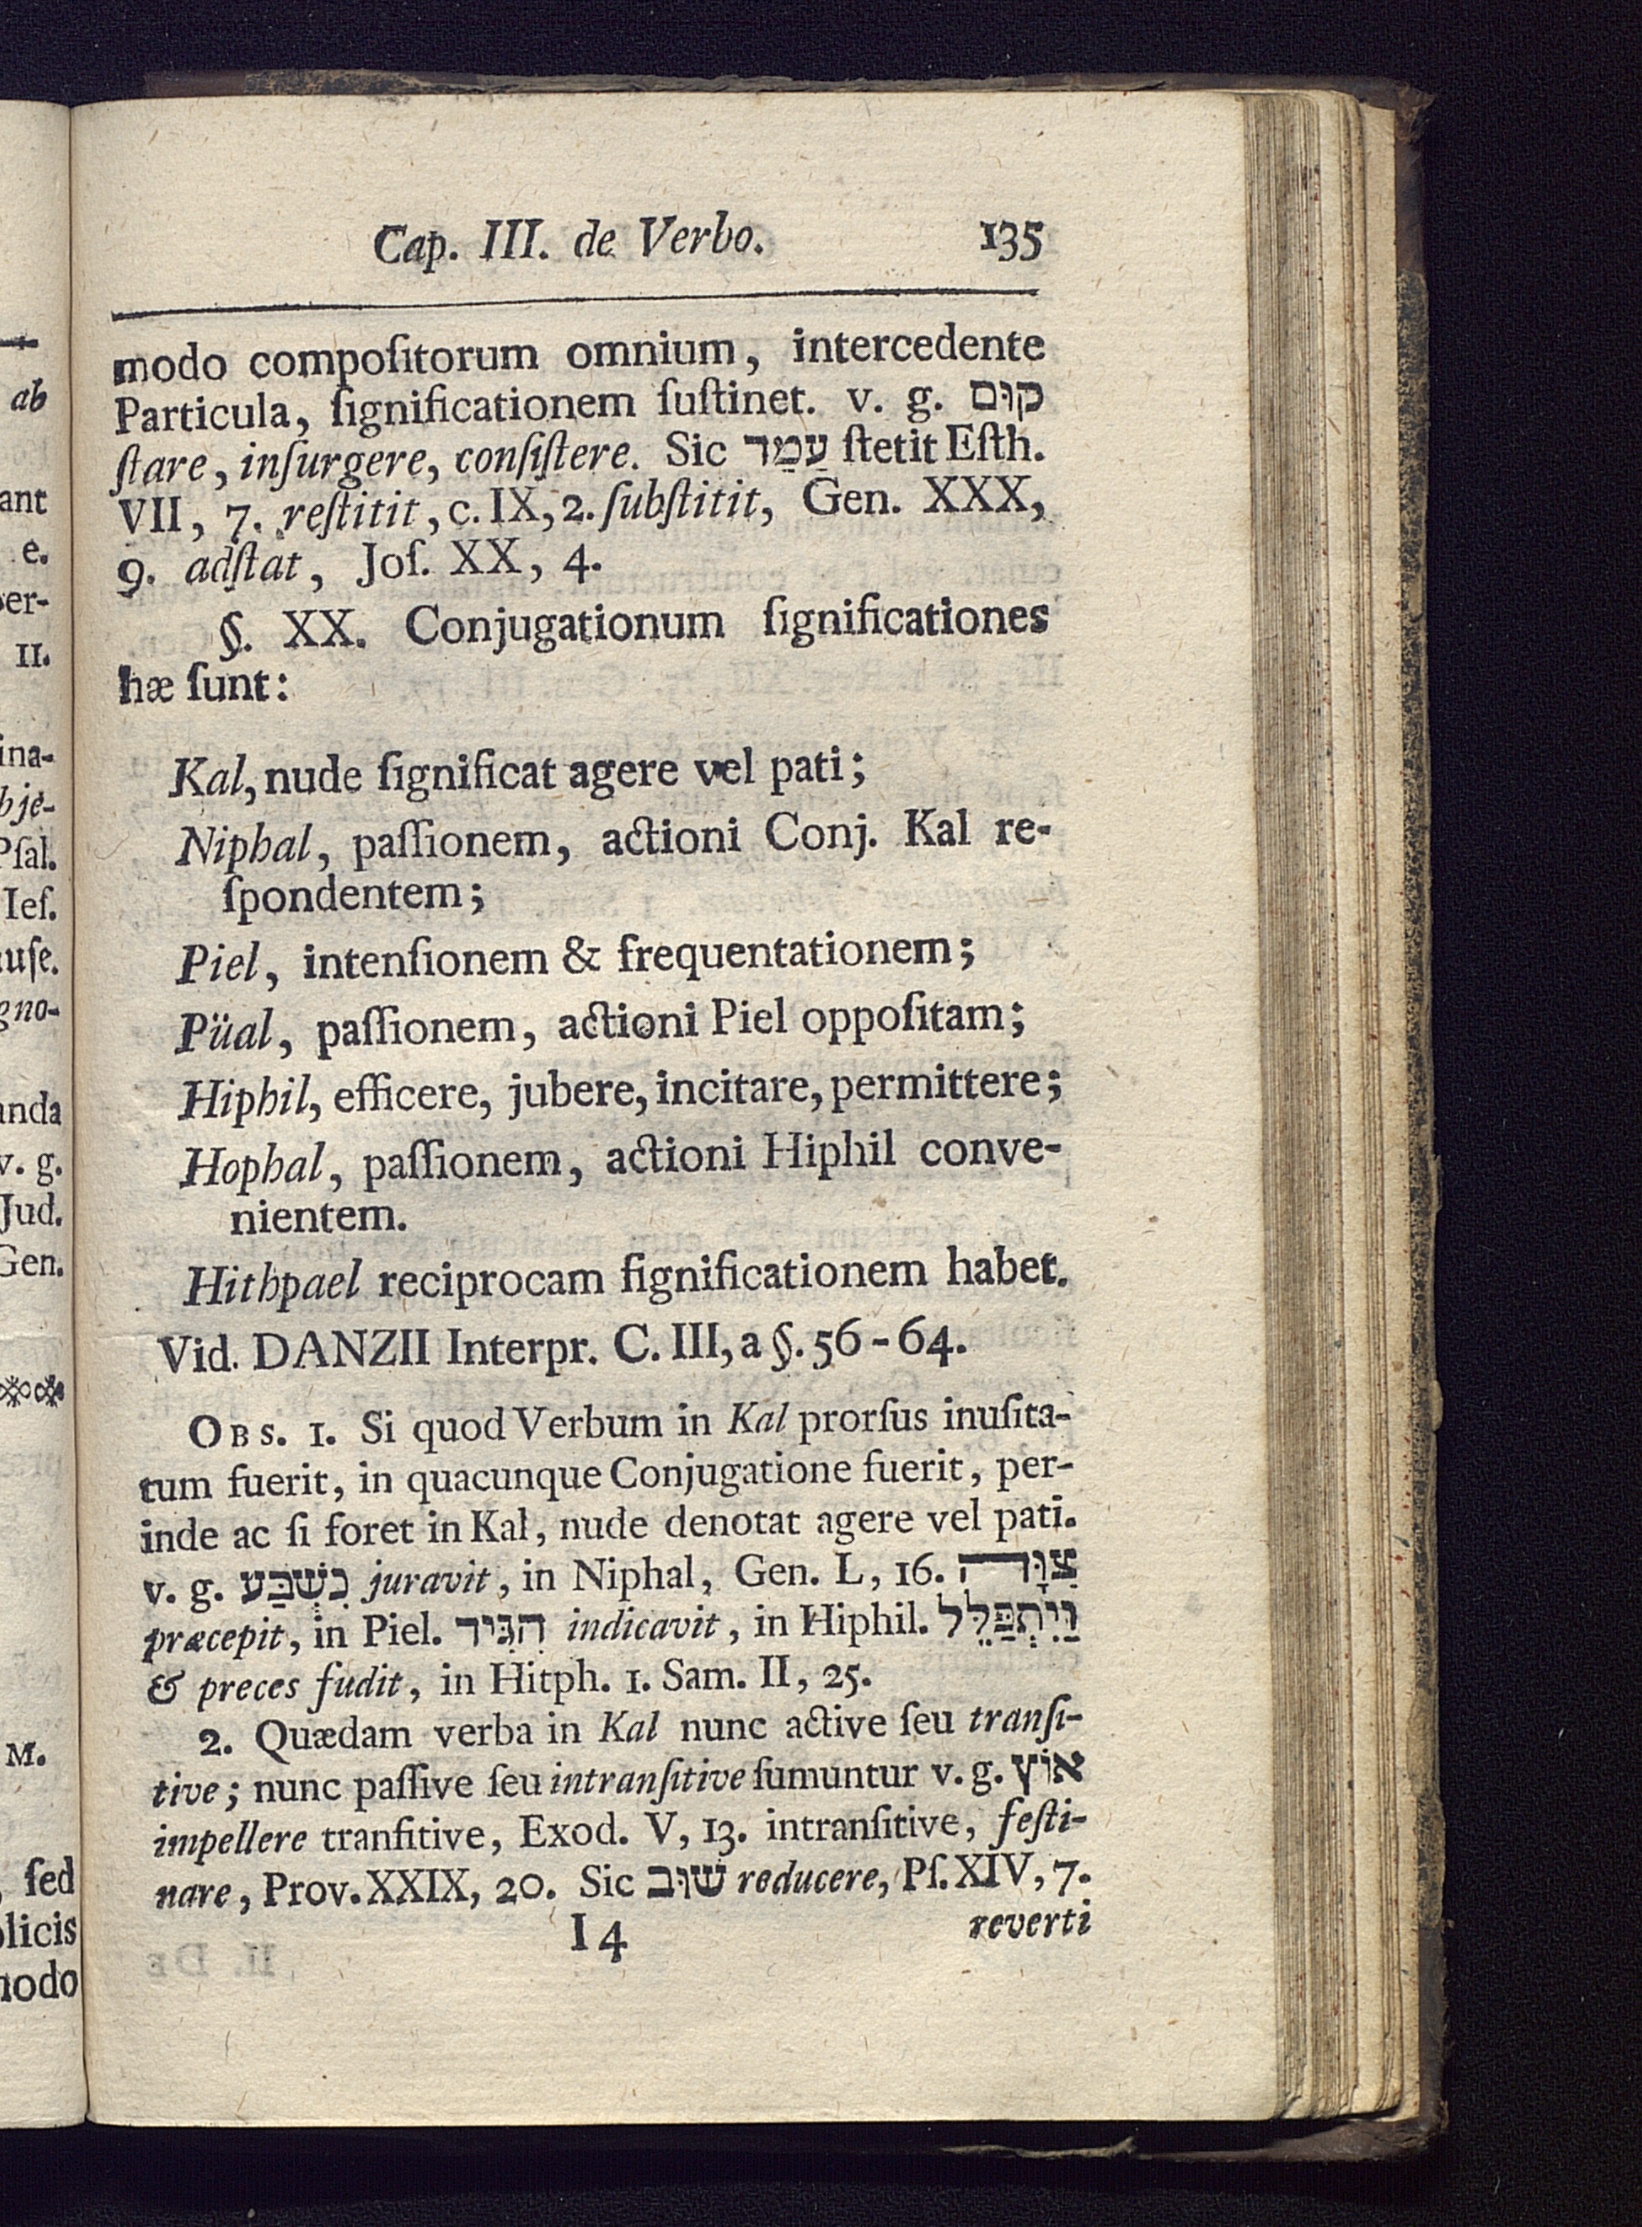 Cap. III. de Verbo. 135
modo compoſitorum omnium, intercedente
Particula, ſignificationem ſuſtinet. v. g. קוּם
ſtare, inſurgere, conſiſtere. Sic עָמַד ſtetit Eſth.
VII, 7. reſtitit, c. IX, 2. ſubſtitit, Gen. XXX,
9. adſtat, Joſ. XX, 4.
§. XX. Conjugationum ſignificationes
hæ ſunt:
Kal, nude ſignificat agere vel pati;
Niphal, paſſionem, actioni Conj. Kal re-
ſpondentem;
Piel, intenſionem & frequentationem;
Püal, paſſionem, actioni Piel oppoſitam;
Hiphil, efficere, jubere, incitare, permittere;
Hophal, paſſionem, actioni Hiphil conve-
nientem.
Hithpael reciprocam ſignificationem habet.
Vid. DANZII Interpr. C. III, a §. 56-64.
OBS. 1. Si quod Verbum in Kal prorſus inuſita-
tum fuerit, in quacunque Conjugatione fuerit, per-
inde ac ſi foret in Kal, nude denotat agere vel pati.
v. g. נִשְׁבַּע juravit, in Niphal, Gen. L, 16. צִוָּה
præcepit, in Piel. הִגִּיד indicavit, in Hiphil. וַיִּתְפַּלֵּל
& preces fudit, in Hitph. 1. Sam. II, 25.
2. Quædam verba in Kal nunc active ſeu tranſi-
tive; nunc paſſive ſeu intranſitive ſumuntur v. g. אוֹץ
impellere tranſitive, Exod. V, 13. intranſitive, feſti-
nare, Prov. XXIX, 20. Sic שׁוּב reducere, Pſ. XIV, 7.
I 4 reverti
ab
ant
e.
II.
ina-
bje-
Pſal.
Ieſ.
uſe.
gno-
anda
v. g.
Jud.
Gen.
M.
, ſed
licis
modo